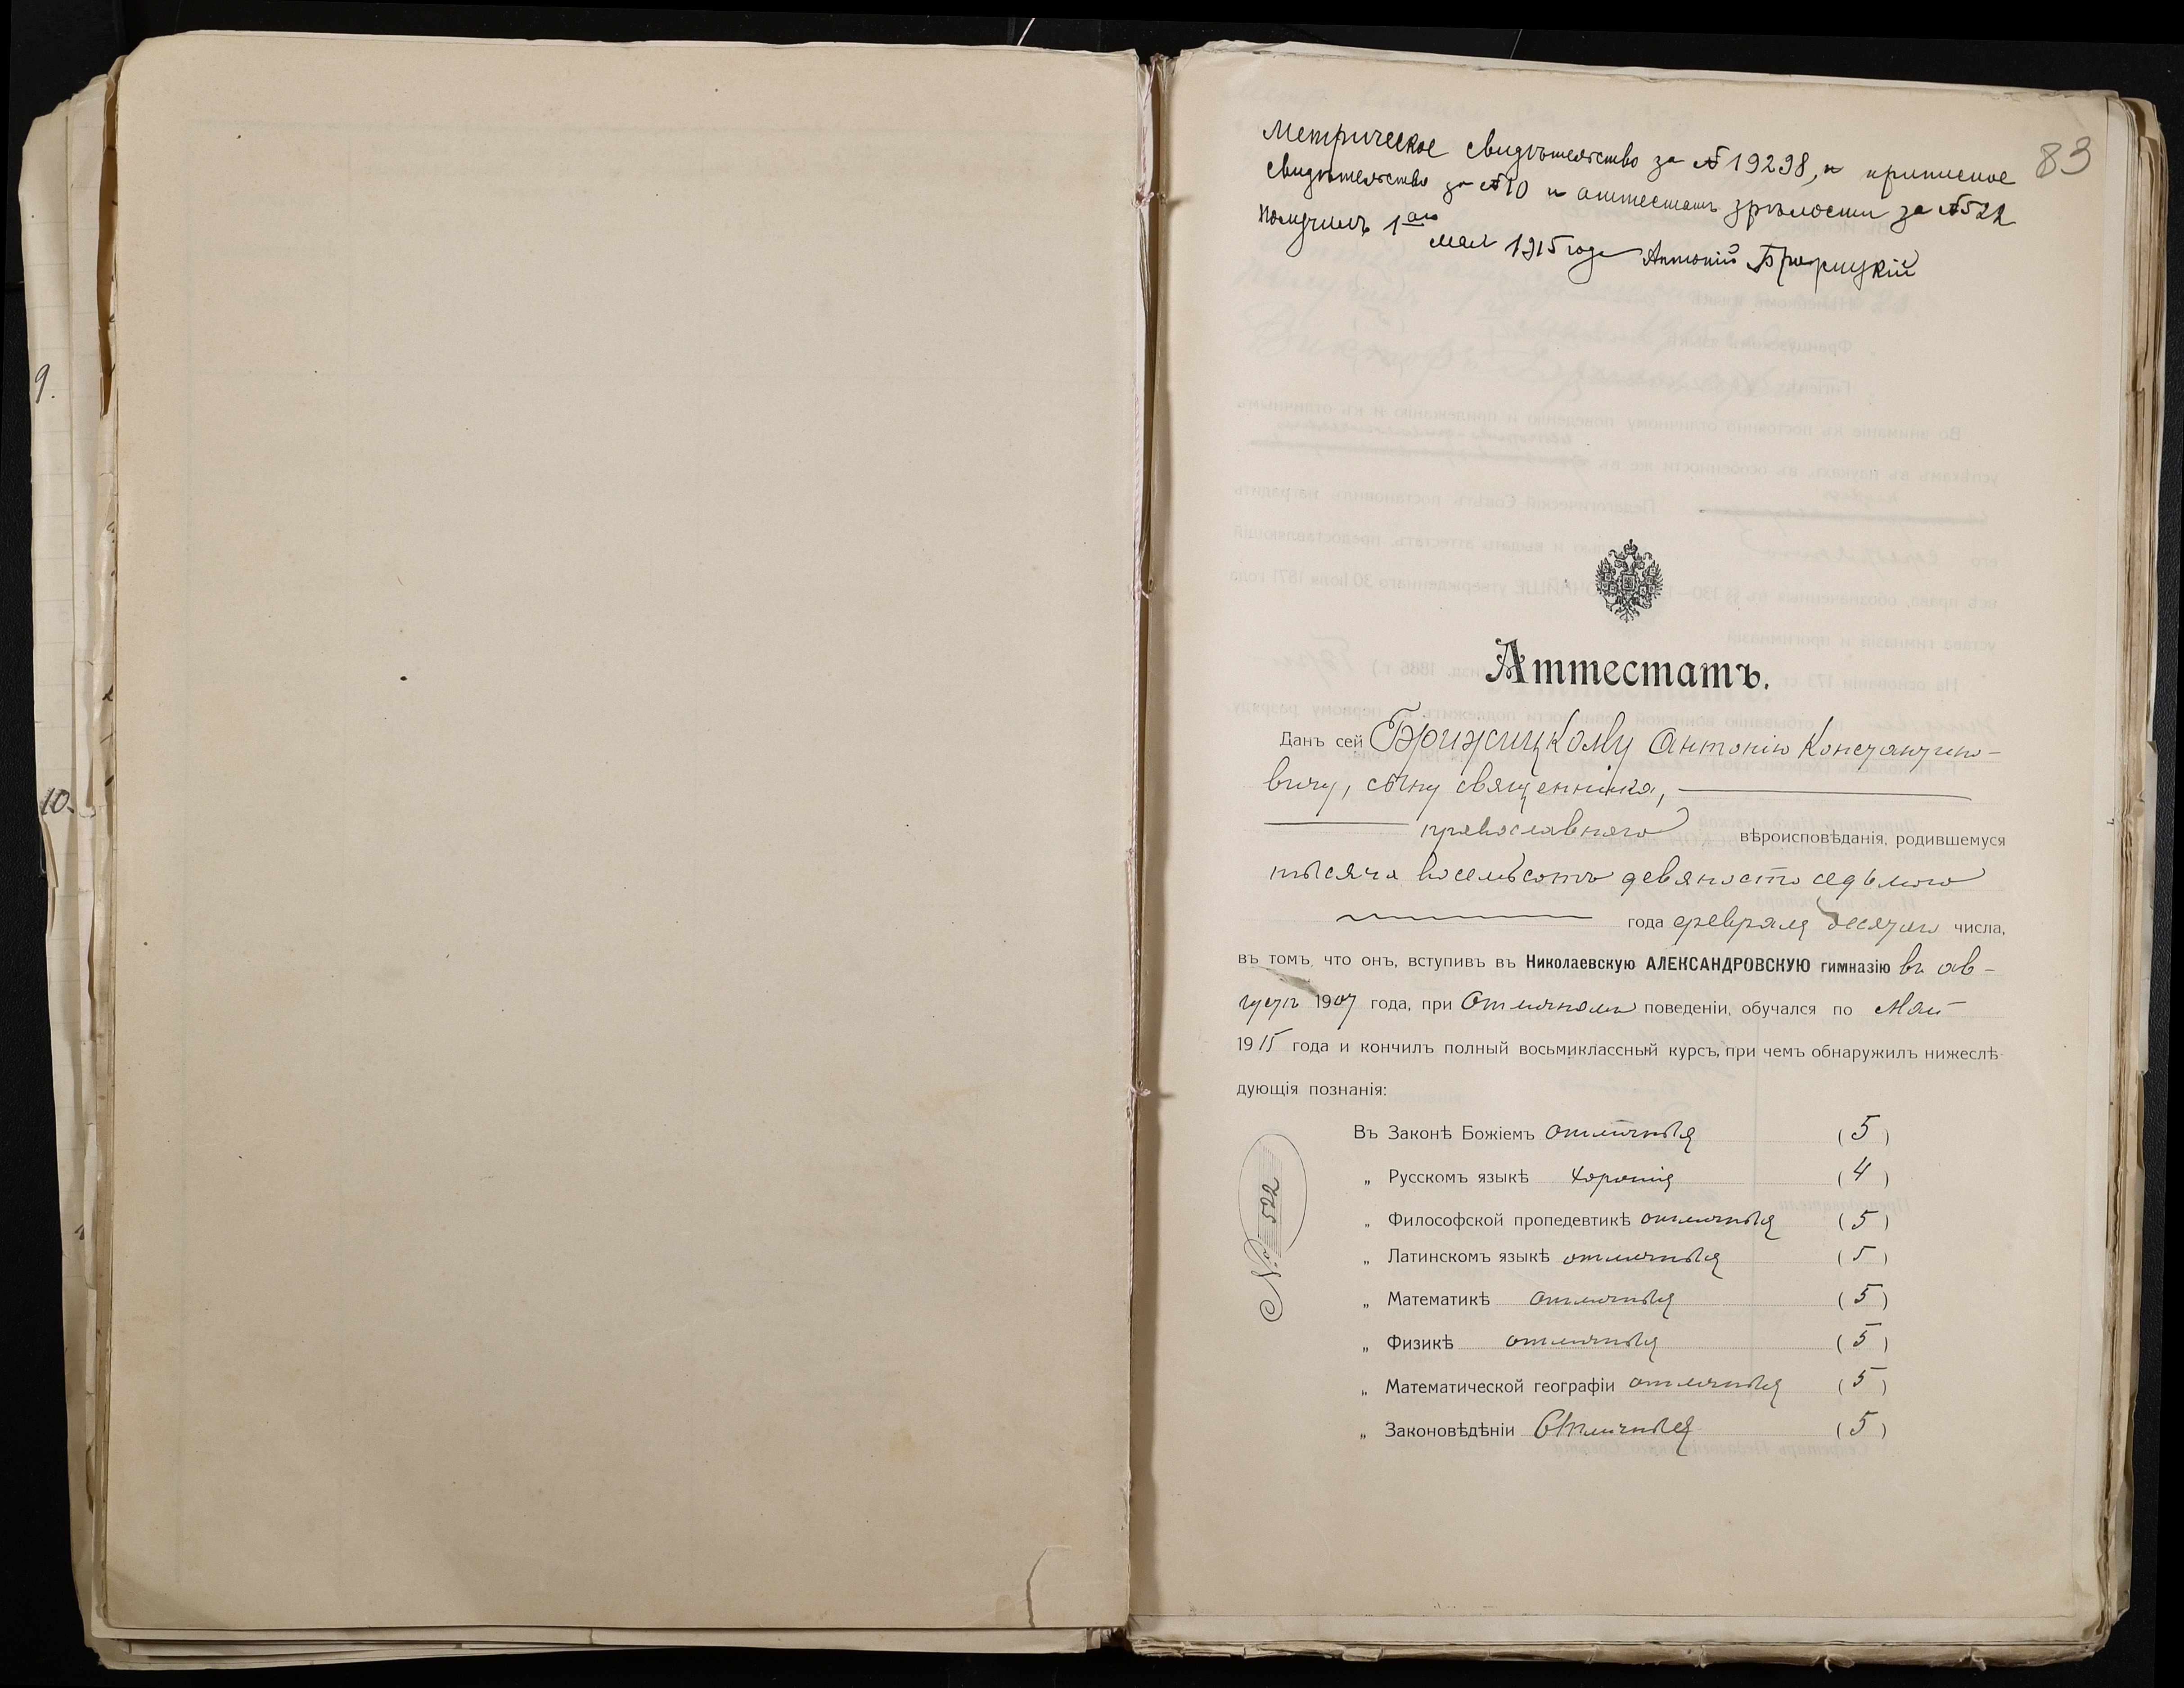 9.
10.
83
Метрическое свидѣтельство за № 19298, и приписное
свидѣтельство за № 10 и аттестатъ зрѣлости за № 522
получилъ 1ого мая 1915 года Антоній Брижицкій
Аттестатъ.
Данъ сей Брижицкому Антонію Константино-
вичу, сыну священника,
православнаго вѣроисповѣданія, родившемуся
тысяча восемьсотъ девяносто седьмого
года февраля десятаго числа,
въ томъ, что онъ, вступивъ въ Николаевскую АЛЕКСАНДРОВСКУЮ гимназію въ ав-
густѣ 1907 года, при отличномъ поведеніи, обучался по май
1915 года и кончилъ полный восьмиклассный курсъ, при чемъ обнаружилъ нижеслѣ-
дующія познанія:
Въ Законѣ Божіемъ отличныя (5)
„ Русскомъ языкѣ хорошія (4)
„ Философской пропедевтикѣ отличныя (5)
„ Латинскомъ языкѣ отличныя (5)
„ Математикѣ отличныя (5)
„ Физикѣ отличныя (5)
„ Математической географіи отличныя (5)
„ Законовѣдѣніи отличныя (5)
№ 522